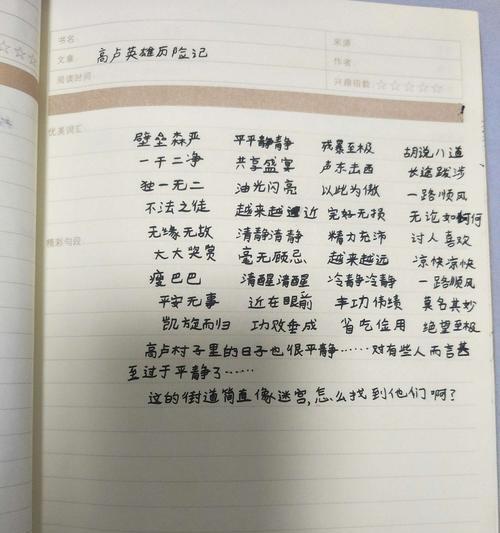 书名
来源
文章 高卢英雄历险记
作者
阅读时间
兴趣指数 ☆☆☆☆☆
优美词汇
壁垒森严 平平静静 残暴至极 胡说八道
一干二净 共享盛宴 声东击西 长途跋涉
独一无二 油光闪亮 以此为傲 一路顺风
不法之徒 越来越近 完好无损 无论如何
精彩句段
无缘无故 清静清静 精力充沛 讨人喜欢
大大哭赏 毫无顾忌 越来越远 凉快凉快
瘦巴巴 清醒清醒 冷静冷静 一路顺风
平安无事 近在眼前 丰功伟绩 莫名其妙
凯旋而归 功败垂成 省吃俭用 绝望至极
高卢村子里的日子也很平静……对有些人而言甚
至过于平静了……
这的街道简直像迷宫,怎么找到他们啊?